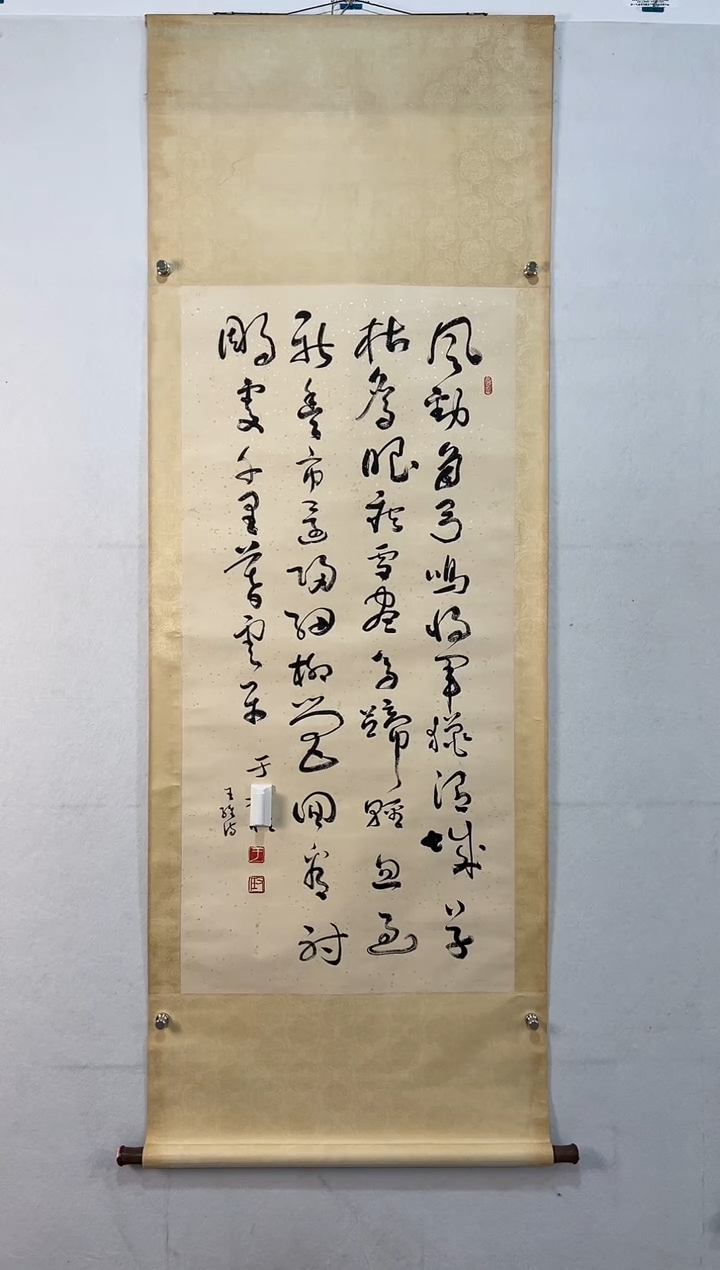 風勁角弓鳴將軍獵渭城草
枯鷹眼疾雪盡馬蹄輕忽過
新豐市還歸細柳營回看射
鵰處千里暮雲平
于
王維詩